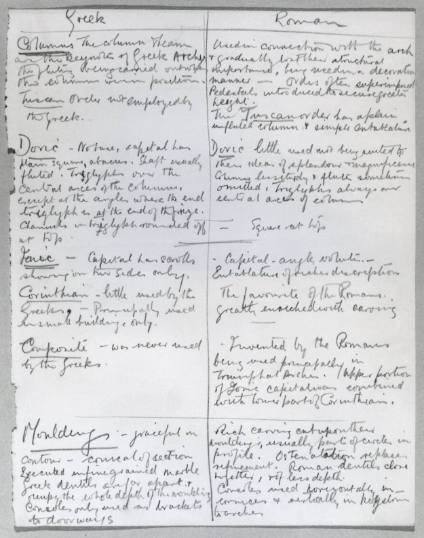 Greek
Columns The column & beam
are the keynotes of Greek Arch
the flutes being carved out when
the column was in position.
Tuscan Order not employed by
the Greek.
Doric - No base, capital has
plain square abacus. Shaft usually
fluted. Triglyphs over the
central axes of the columns,
except at the angles where the end
triglyph is at the end of the frieze.
Channels in triglyph rounded off
at top
Ionic - Capital has scrolls
showing on two sides only.
Corinthian - little used by the
Greeks, - Principally used
in small buildings, only.
Composite - was never used
by the Greeks.
Mouldings - graceful in
contour - conical of section
Executed in fine grained marble
Greek dentils are far apart &
occupy the whole depth of the moulding
Consoles only used as brackets
to doorways
Roman
Used in connection with the arch
& gradually lost their structural
importance, being used in a decorative
manner - Orders often superimposed
Pedestals introduced to secure greater
height.
The Tuscan order has a plain
unfluted column & simple entablature
Doric little used not being suited to
their ideas of splendour & magnificence
Columns less sturdy & flutes sometimes
omitted. Triglyphs always over
central axes of column
- Square cut top
- Capital - angle volutes -
Entablature of richer description
The favourite of the Romans.
greatly enriched with carving
- Invented by the Romans
being used principally in
triumphal Arches. Upper portion
of Ionic capital was combined
with lower part of Corinthian.
Rich carving cut upon these
mouldings, usually parts of circles in
profile. Ostentation replaces
refinement. Roman dentils close
together, & of less depth.
Consoles used horizontally in
cornices & vertically in keystones
to arches